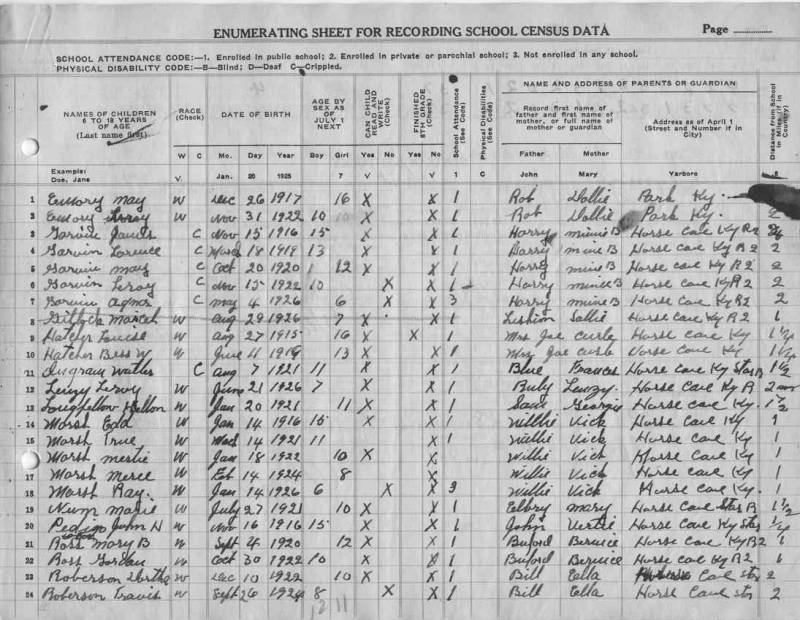 ENUMERATING SHEET FOR RECORDING SCHOOL CENSUS DATA Page
SCHOOL ATTENDANCE CODE:—1. Enrolled in public school; 2. Enrolled in private or parochial school; 3. Not enrolled in any school.
PHYSICAL DISABILITY CODE:—B—Blind; D—Deaf C—Crippled.
NAMES OF CHILDREN 6 TO 18 YEARS OF AGE (Last name first)
RACE (Check)
DATE OF BIRTH
AGE BY SEX AS OF JULY 1 NEXT
CAN CHILD READ AND WRITE (Check)
FINISHED 8TH GRADE (Check)
School Attendance (See Code)
Physical Disabilities (See Code)
NAME AND ADDRESS OF PARENTS OR GUARDIAN
Record first name of father and first name of mother, or full name of mother or guardian
Address as of April 1 (Street and Number if in City)
Distance from School in Miles (if in Country)
W C Mo. Day Year Boy Girl Yes No Yes No Father Mother
Example: Doe, Jane V. Jan. 20 1925 7 V V 1 C John Mary Yarboro
1 Emory May W Dec 26 1917 16 X X 1 Rob Dollie Park Ky.
2 Emory Leroy W Nov 31 1922 10 X X 1 Rob Dollie Park Ky. 2
3 Garvin C Nov 15 1916 15 X X 1 Harry B Horse Cave Ky R2
4 Garvin C March 18 1918 13 X X 1 Harry B Horse Cave Ky R 2 2
5 Garvin May C Oct 20 1920 12 X X 1 Harry B Horse Cave Ky R 2 2
6 Garvin Leroy C Nov 15 1922 10 X X 1 Harry B Horse Cave Ky R 2 2
7 Garvin Agnes C May 4 1926 6 X X 3 Harry B Horse Cave Ky R2 2
8 W Aug 29 1926 7 X X 1 Sallie Horse Cave Ky R2 1
9 Hatcher Louise W Aug 27 1915 16 X X 1 Mrs Joe Horse Cave Ky 1 1/2
10 Hatcher Bess W W June 11 13 X X 1 Mrs Joe Horse Cave Ky 1 1/2
11 Ingram C Aug 7 1921 11 X X 1 Blue Frances Horse Cave Ky Star R 1 1/2
12 Leroy W June 21 1926 7 X X 1 Horse Cave Ky R 2
13 Longfellow W Jan 20 1921 11 X X 1 Sam Georgie Horse Cave Ky. 1 1/2
14 Marsh Edd W Jan 14 1916 15 X X 1 Willie Vick Horse Cave Ky 1
15 Marsh True W 14 1921 11 X X 1 Willie Vick Horse Cave Ky 1
16 Marsh W Jan 18 1922 10 X X Willie Vick Horse Cave Ky 1
17 Marsh W 14 1924 8 X Willie Vick Horse Cave Ky 1
18 Marsh Ray. W Jan 14 1926 6 X X 3 Willie Vick Horse Cave Ky. 1
19 Nunn Marie W July 27 1921 10 X X 1 Mary Horse Cave Star R 1 1/2
20 Pedigo John H W Nov 16 1916 15 X X 1 John Vertie Horse Cave Ky Star
21 Ross Mary B W Sept 4 1920 12 X X 1 Buford Bernice Horse Cave Ky R2 1
22 Ross Gordan W Oct 30 1922 10 X X 1 Buford Bernice Horse Cave Ky R2 1
23 Roberson W Dec 10 1922 10 X X 1 Bill Ella Cave Star 2
24 Roberson Travis W Sept 26 1924 8 X X 1 Bill Ella Horse Cave Star 2
12 11